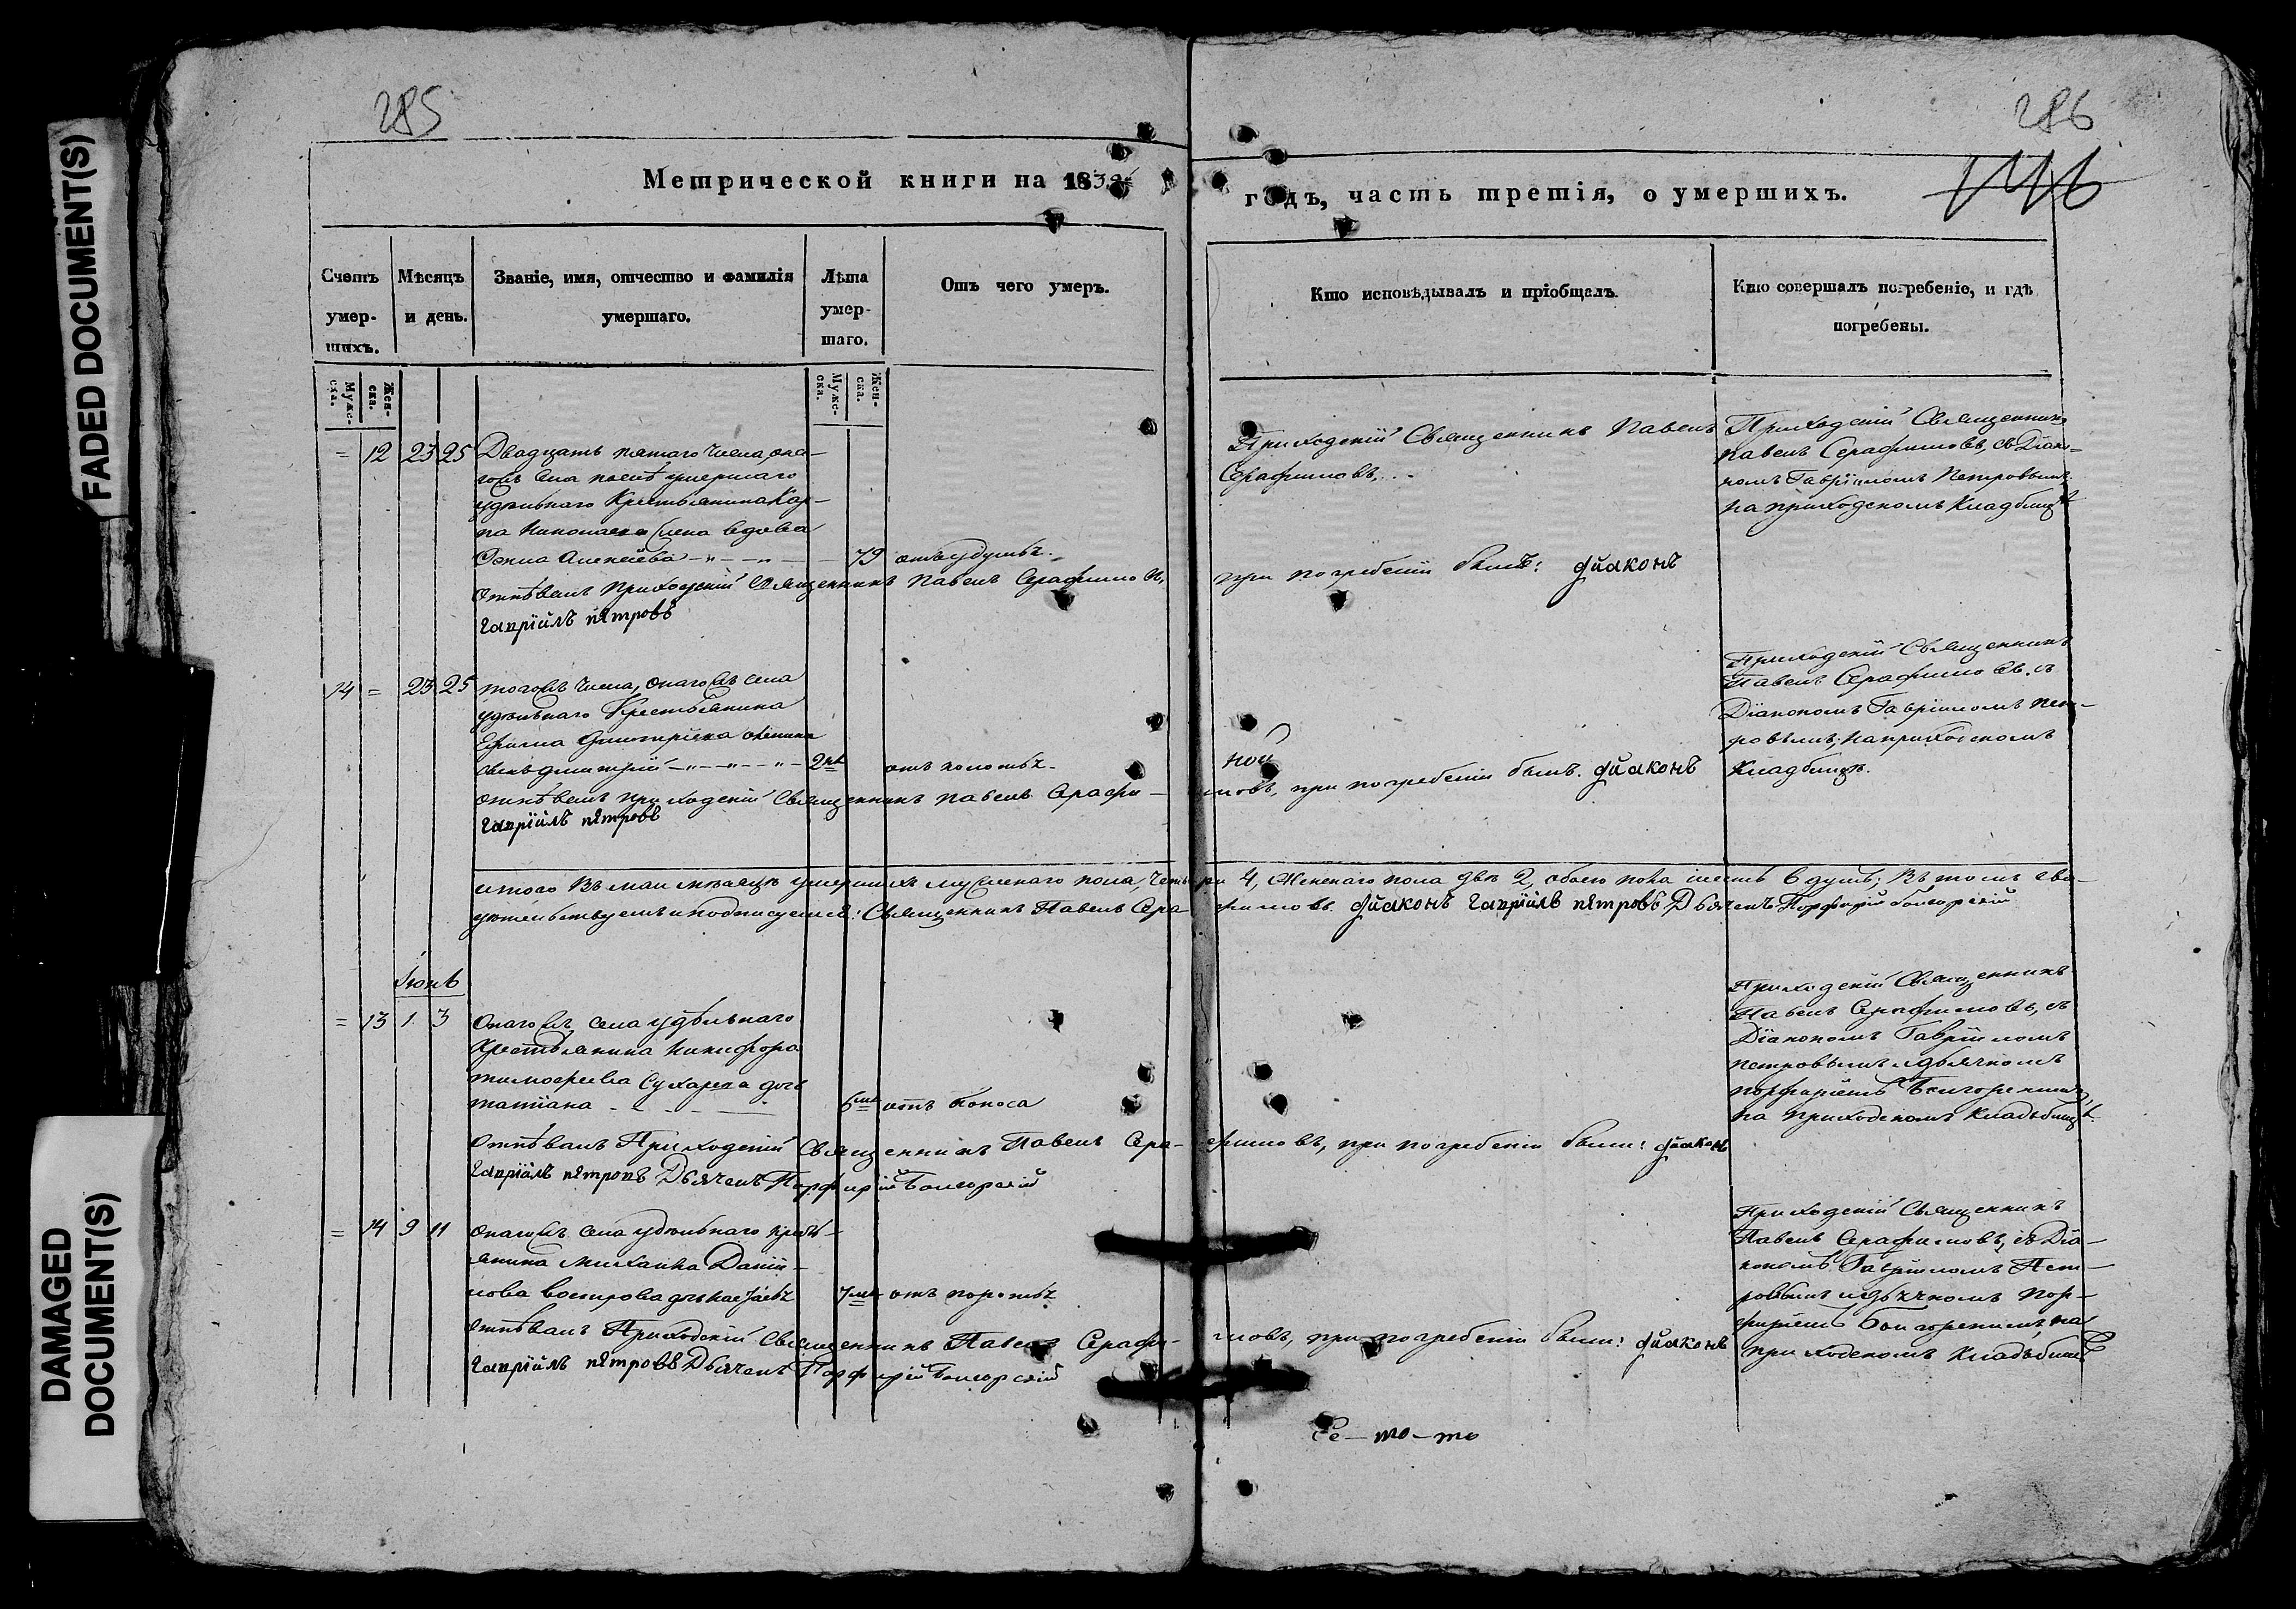 FADED DOCUMENT(S)
DAMAGED
DOCUMENT(S)
285
286
146
Метрической книги на 183
годъ, часть третія, о умершихъ.
Счетъ умер-шихъ.
Мѣсяцъ и день.
Званіе, имя, отчество и фамилія умершаго.
Лѣта умер-шаго.
Отъ чего умеръ.
Кто исповѣдывалъ и пріобщалъ.
Кто совершалъ погребеніе, и гдѣ погребены.
Мужс-ска.
Жен-ска.
Мужс-ска.
Жен-ска.
= 12 23 25 Двадцать пятаго числа, она-
гожъ села послѣ умершаго
удѣльнаго Крестьянина Кар-
па Николаева жена вдова
Алексѣева 79 отъ удушья.
Приходскій Священникъ Павелъ
Серафимовъ.
Приходскій Священникъ
Павелъ Серафимовъ, съ Діако-
номъ Гавріиломъ Петровымъ
на приходскомъ кладбищѣ
Отпѣвалъ Приходскій Священникъ Павелъ Серафимовъ, при погребеніи былъ: дйаконъ
гавріилъ пѣтровъ
14 = 23 25 тогожъ числа, онагожъ села
удѣльнаго Крестьянина
Ефима Дмитріева
сынъ Дмитрій 2 отъ колотья
Приходскій Священникъ
Павелъ Серафимовъ, съ
Діакономъ Гавріиломъ Пет-
ровымъ, на приходскомъ
кладбищѣ.
отпѣвалъ приходскій Священникъ Павелъ Серафи-мовъ, при погребеніи былъ. дйаконъ
гавріилъ пѣтровъ
итого въ маи мѣсяцѣ умершихъ мужескаго пола, четыри 4, Женскаго пола двѣ 2, обоего пола шесть 6 душъ; въ томъ сви-
дѣтельствуемъ и подписуемся: Священникъ Павелъ Сера-фимовъ. дйаконъ гавріилъ пѣтровъ Дьячекъ Порфирій
Іюнь
= 13 1 3 Онагожъ села удѣльнаго
Крестьянина Никифора
Тимофеева Сухарева дочь
татіана 6 отъ поноса
Приходскій Священникъ
Павелъ Серафимовъ, съ
Діакономъ Гавріиломъ
Петровымъ и дьячкомъ
Порфиріемъ
на приходскомъ кладьбищѣ
Отпѣвалъ Приходскій Священникъ Павелъ Сера-фимовъ, при погребеніи были: дйаконъ
гавріилъ пѣтровъ Дьячекъ Порфирій
= 14 9 11 онагожъ села удѣльнаго кресть-
янина Михаила Даніи-
лова дочь 7 отъ
Приходскій Священникъ
Павелъ Серафимовъ, съ Діа-
кономъ Гавріиломъ Пет-
ровымъ и дьячкомъ Пор-
фиріемъ на
приходскомъ кладьбищѣ
Отпѣвалъ Приходскій Священникъ Павелъ Серафи-мовъ, при погребеніи были: дйаконъ
гавріилъ пѣтровъ Дьячекъ Порфирій